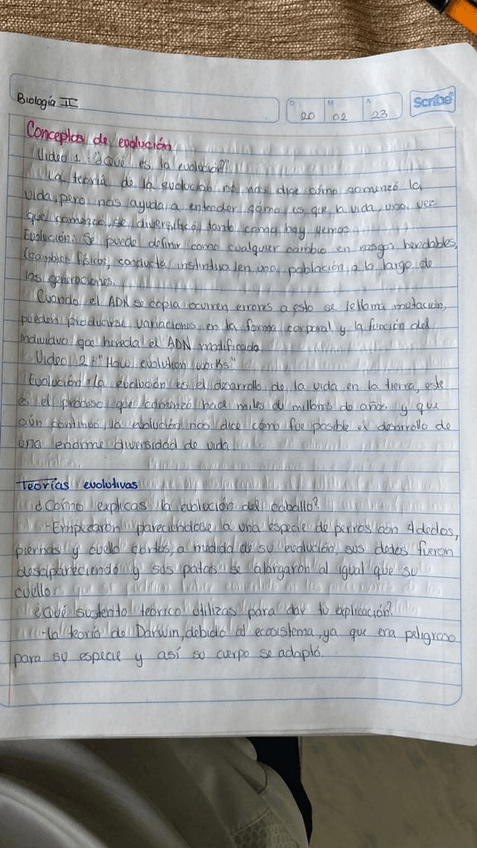 Biología II
D M A
20 02 23
Scribe
Conceptos de evolución
Video 1: "¿Qué es la evolución?"
La teoría de la evolución no nos dice cómo comenzó la
vida, pero nos ayuda a entender cómo es que la vida, una vez
que comenzó, se diversificó tanto como hoy vemos.
Evolución: Se puede definir como cualquier cambio en rasgos heredables,
(cambios físicos, conducta instintiva) en una población a lo largo de
las generaciones.
Cuando el ADN se copia ocurren errores a esto se le llama mutación,
pueden producirse variaciones en la forma corporal y la función del
individuo que hereda el ADN modificado.
Video 2: "How evolution works"
Evolución: la evolución es el desarrollo de la vida en la tierra, este
es el proceso que comenzó hace miles de millones de años y que
aún continua, la evolución nos dice cómo fue posible el desarrollo de
una enorme diversidad de vida.
Teorías evolutivas
¿Cómo explicas la evolución del caballo?
-Empezaron pareciéndose a una especie de perros con 4 dedos,
piernas y cuello cortos, a medida de su evolución, sus dedos fueron
desapareciendo y sus patas se alargaron al igual que su
cuello.
¿Qué sustento teórico utilizas para dar tu explicación?
-la teoría de Darwin, debido al ecosistema, ya que era peligroso
para su especie y así su cuerpo se adaptó.